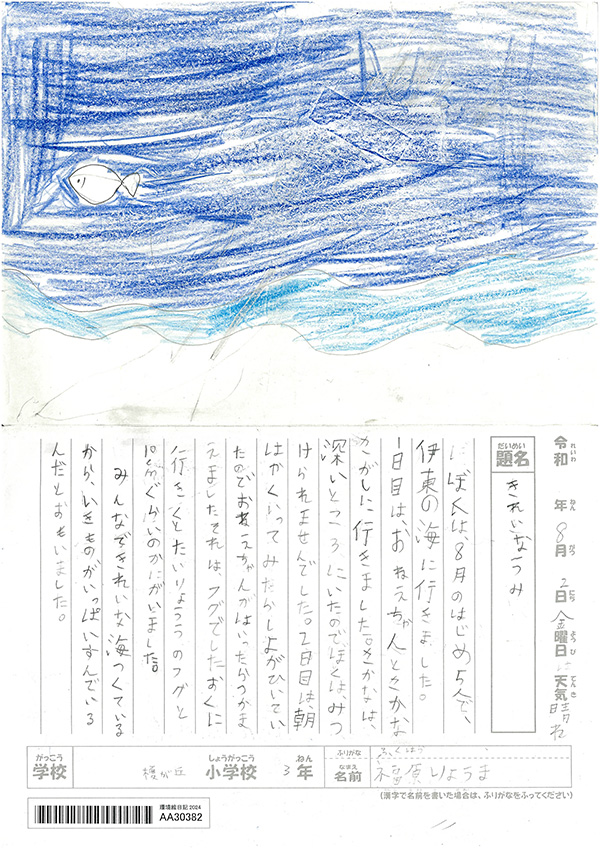 令和 年 8月 2日 金曜日 天気 晴れ
れいわ ねん がつ にち ようび てんき
だいめい
題名 きれいなうみ
にぼくは、8月のはじめ5人で、
伊東の海に行きました。
1日目は、おねえちゃんとさかな
さがしに行きました。さかなは、
深いところ、にいたのでぼくは、みつ
けられませんでした。2日目は、朝
はやくいってみたらしおがひいてい
たのでおねえちゃんがはいったらつかま
えましたそれは、フグでしたおくに
行きくとたいりょうのフグと
10cmぐらいのかにがいました。
みんなできれいな海つくている
から、いきものがいっぱいすんでいる
んだとおもいました。
がっこう しょうがっこう ねん ふりがな
学校 榎が丘 小学校 3年 なまえ 名前 福原りょうま
(漢字で名前を書いた場合は、ふりがなをふってください)
環境絵日記 2024
AA30382